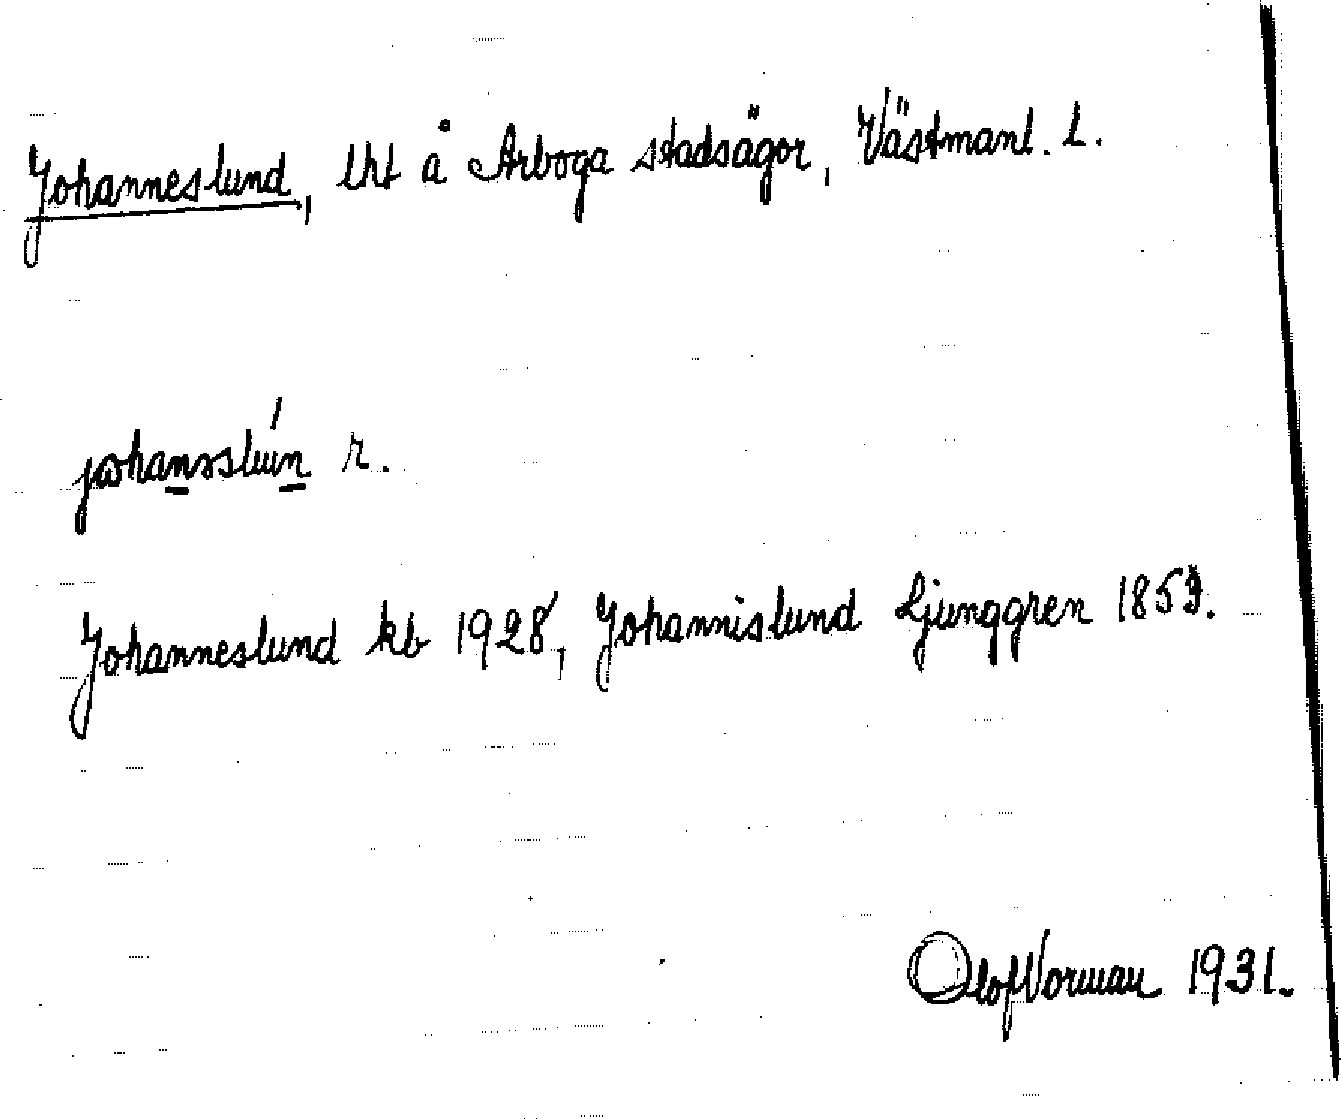 Johanneslund, lht å Arboga stadsägor, Västmanl. L.
johansslún r.
Johanneslund kb 1928, Johannislund Ljunggren 1853.
Olof Norman 1931.